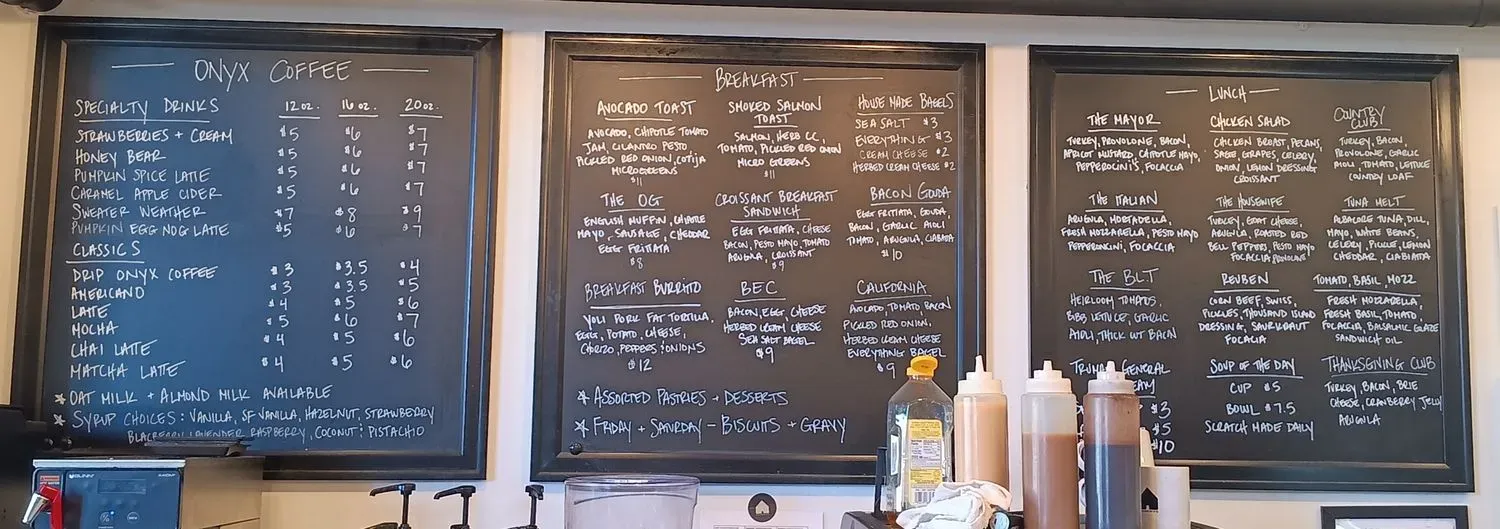 ONYX COFFEE
SPECIALTY DRINKS 12 oz. 16 oz. 20 oz.
STRAWBERRIES + CREAM $5 $6 $7
HONEY BEAR $5 $6 $7
PUMPKIN SPICE LATTE $5 $6 $7
CARAMEL APPLE CIDER $5 $6 $7
SWEATER WEATHER $7 $8 $9
PUMPKIN EGG NOG LATTE $5 $6 $7
CLASSICS
DRIP ONYX COFFEE $3 $3.5 $4
AMERICANO $3 $3.5 $5
LATTE $4 $5 $6
MOCHA $5 $6 $7
CHAI LATTE $4 $5 $6
MATCHA LATTE $4 $5 $6
* OAT MILK + ALMOND MILK AVAILABLE
* SYRUP CHOICES: VANILLA, SF VANILLA, HAZELNUT, STRAWBERRY
BLACKBERRY LAVENDER RASPBERRY, COCONUT: PISTACHIO
BREAKFAST
AVOCADO TOAST
AVOCADO, CHIPOTLE TOMATO
JAM, CILANTRO PESTO,
PICKLED RED ONION, COTIJA
MICROGREENS
$11
SMOKED SALMON
TOAST
SALMON, HERB CC,
TOMATO, PICKLED RED ONION
MICRO GREENS
$11
HOUSE MADE BAGELS
SEA SALT $3
EVERYTHING $3
CREAM CHEESE $2
HERBED CREAM CHEESE $2
THE OG
ENGLISH MUFFIN, CHIPOTLE
MAYO, SAUSAGE, CHEDDAR
EGG FRITATA
$8
CROISSANT BREAKFAST
SANDWICH
EGG FRITATA, CHEESE
BACON, PESTO MAYO, TOMATO
ARUGULA, CROISSANT
$9
BACON GOUDA
EGG FRITATA, GOUDA,
BACON, GARLIC AIOLI
TOMATO, ARUGULA, CIABATA
$10
BREAKFAST BURRITO
YOLI PORK FAT TORTILLA,
EGGS, POTATO, CHEESE,
CHORIZO, PEPPERS & ONIONS
$12
BEC
BACON, EGG, CHEESE
HERBED CREAM CHEESE
SEA SALT BAGEL
$9
CALIFORNIA
AVOCADO, TOMATO, BACON
PICKLED RED ONION,
HERBED CREAM CHEESE
EVERYTHING BAGEL
$9
* ASSORTED PASTRIES + DESSERTS
* FRIDAY + SATURDAY - BISCUITS + GRAVY
LUNCH
THE MAYOR
TURKEY, PROVOLONE, BACON,
APRICOT MUSTARD, CHIPOTLE MAYO,
PEPPERONCINI'S, FOCACCIA
CHICKEN SALAD
CHICKEN BREAST, PECANS,
SAGE, GRAPES, CELERY,
ONION, LEMON DRESSING
CROISSANT
COUNTRY
CLUB
TURKEY, BACON,
PROVOLONE, GARLIC
AIOLI, TOMATO, LETTUCE
COUNTRY LOAF
THE ITALIAN
ARUGULA, MORTADELLA,
FRESH MOZZARELLA, PESTO MAYO
PEPPERONCINI, FOCACCIA
THE HOUSEWIFE
TURKEY, GOAT CHEESE,
ARUGULA, ROASTED RED
BELL PEPPERS, PESTO MAYO
FOCACCIA PROVOLONE
TUNA MELT
ALBACORE TUNA, DILL,
MAYO, WHITE BEANS,
CELERY, PICKLE, LEMON
CHEDDAR, CIABATA
THE BLT
HEIRLOOM TOMATOS,
BIBB LETTUCE, GARLIC
AIOLI, THICK CUT BACON
REUBEN
CORN BEEF, SWISS,
PICKLES, THOUSAND ISLAND
DRESSING, SAURKRAUT
FOCACIA
TOMATO, BASIL, MOZZ
FRESH MOZZARELLA,
FRESH BASIL, TOMATO,
FOCACCIA, BALSALMIC GLAZE
SANDWICH OIL
GENERAL
$3
$5
$10
SOUP OF THE DAY
CUP $5
BOWL $7.5
SCRATCH MADE DAILY
THANKSGIVING CLUB
TURKEY, BACON, BRIE
CHEESE, CRANBERRY JELLY
ARUGULA
BUNN